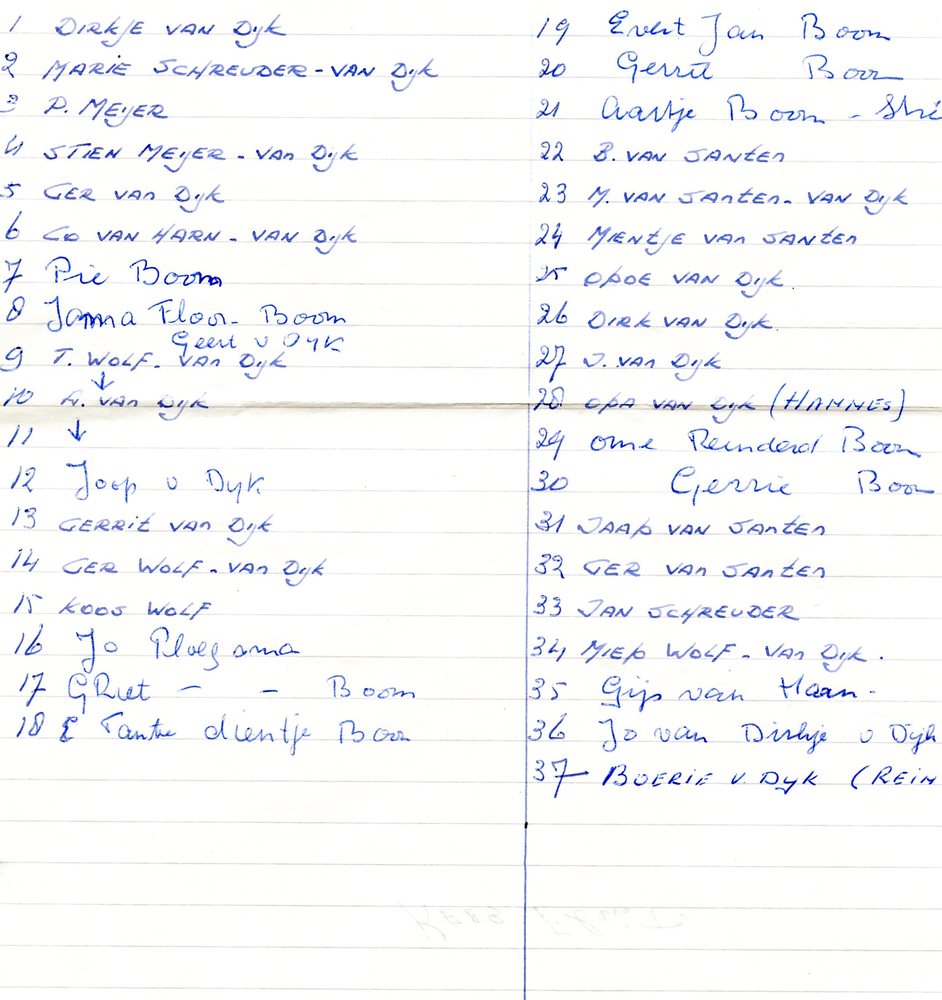 1 DIRKJE VAN Dyk
2 MARIE SCHREUDER-VAN Dyk
3 P. MEyER
4 STIEN MEyER - VAn Dyk
5 GER VAn Dyk
6 CO VAN HARN - VAN Dyk
7 Pie Boom
8 Janna Floor- Boom
Geert v Dyk
9 T. WOLF- VAN Dyk
10 VAn Dyk
11
12 Joop v Dyk
13 GERRIT VAn Dyk
14 GER WOLF-VAn Dyk
15 KOOS WOLF
16 Jo Ploegsma
17 GRiet - - Boom
18 Tante dientje Boom
19 Evert Jan Boom
20 Gerrit Boom
21 Aartje Boom -
22 B. VAN SANTEn
23 M. VAN SANTEn- VAN Dyk
24 MIENTJE VAn SANTEn
25 OPOE VAN Dyk.
26 DIRK VAN Dyk.
27 J. VAN Dyk
28 OPA VAN Dyk (HANNES)
29 ome Reinderd Boom
30 Gerrie Boom
31 JAAP VAN SANTEN
32 GER VAn SANTEn
33 JAN SCHREUDER
34 MIEP WOLF- VAn Dyk.
35 Gijs van Haan-
36 Jo van Dirkje v Dyk
37 BOERIE V. Dyk (REIN